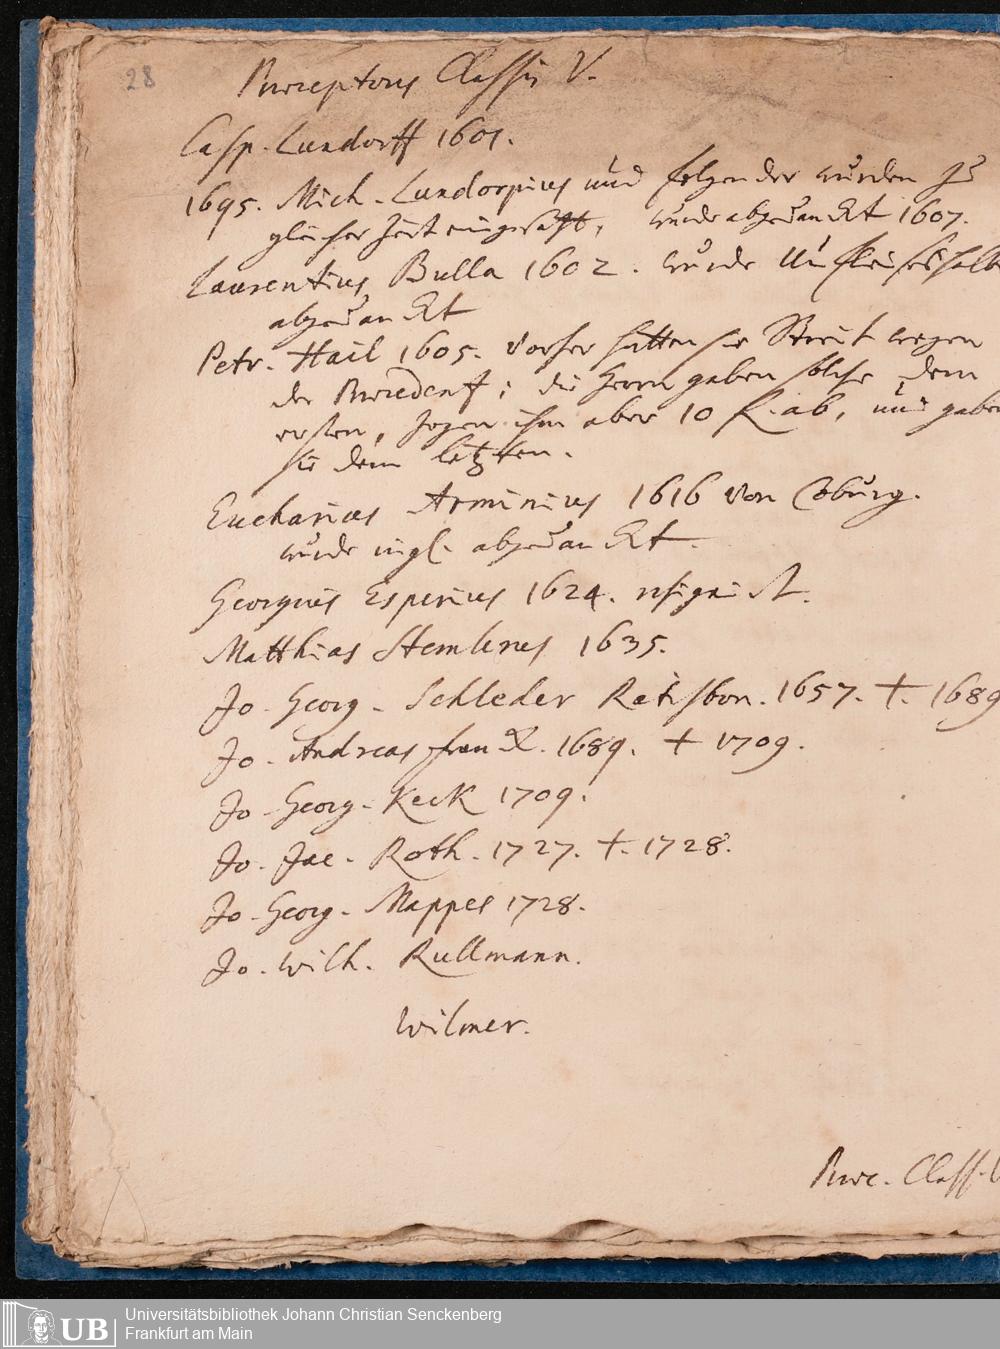 28
Praeceptores Classis V.
Casp. Lundorff 1601.
1605. Mich. Lundorpius und folgender wurden zu
gleicher Zeit eingesetzt, wurde abgedanckt 1607.
Laurentius Bulla 1602. wurde Unfleißeshalb
abgedanckt
Petr. Hail 1605. Vorher hatten sie Streit wegen
der Praecedentz; die Herrn gaben solche dem
ersten, zogen ihm aber 10 f. ab, und gaben
sie dem letzten.
Eucharius Arminius 1616 von Coburg.
wurde ingl. abgedanckt.
Georgius Esperius 1624. resignirt.
Matthias Stemlerus 1635.
Jo. Georg. Schleder Ratisbon. 1657. †. 1689
Jo. Andreas Franck. 1689. † 1709.
Jo. Georg. Keck 1709.
Jo. Jac. Roth. 1727. †. 1728.
Jo. Georg. Mappes 1728.
Jo. Wilh. Rullmann.
Wilmer.
Praec. Class.
UB
Universitätsbibliothek Johann Christian Senckenberg
Frankfurt am Main